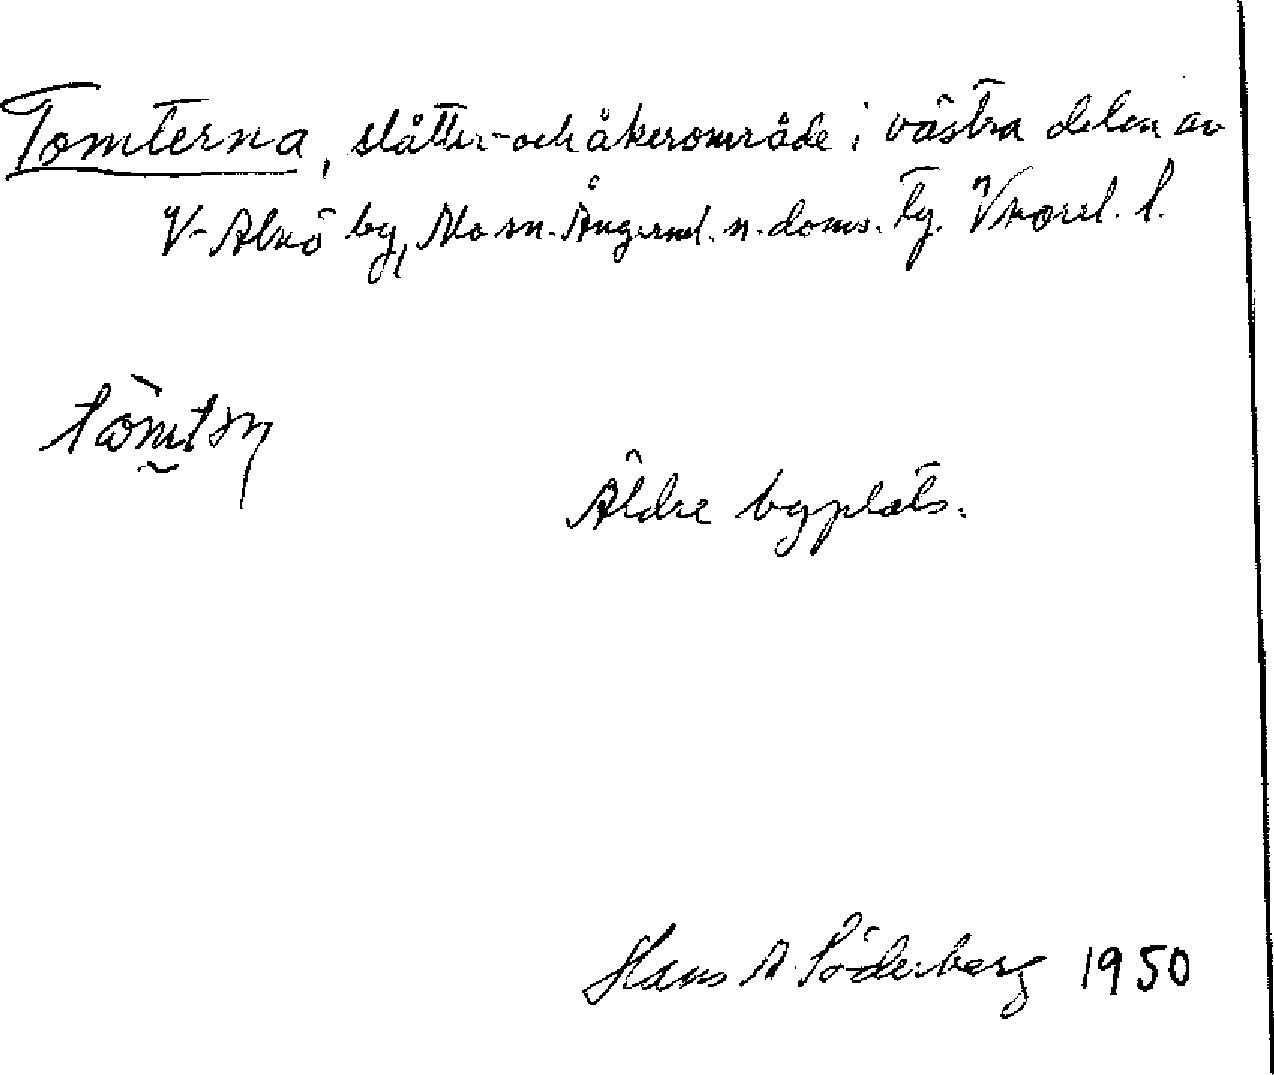 Tomterna, slåtter- och åkerområde i västra delen av
V-Alnö by, Mo sn. Ångerml. n. doms. tg. Vnorrl. l.
Äldre byplats.
Hans A. Söderberg 1950